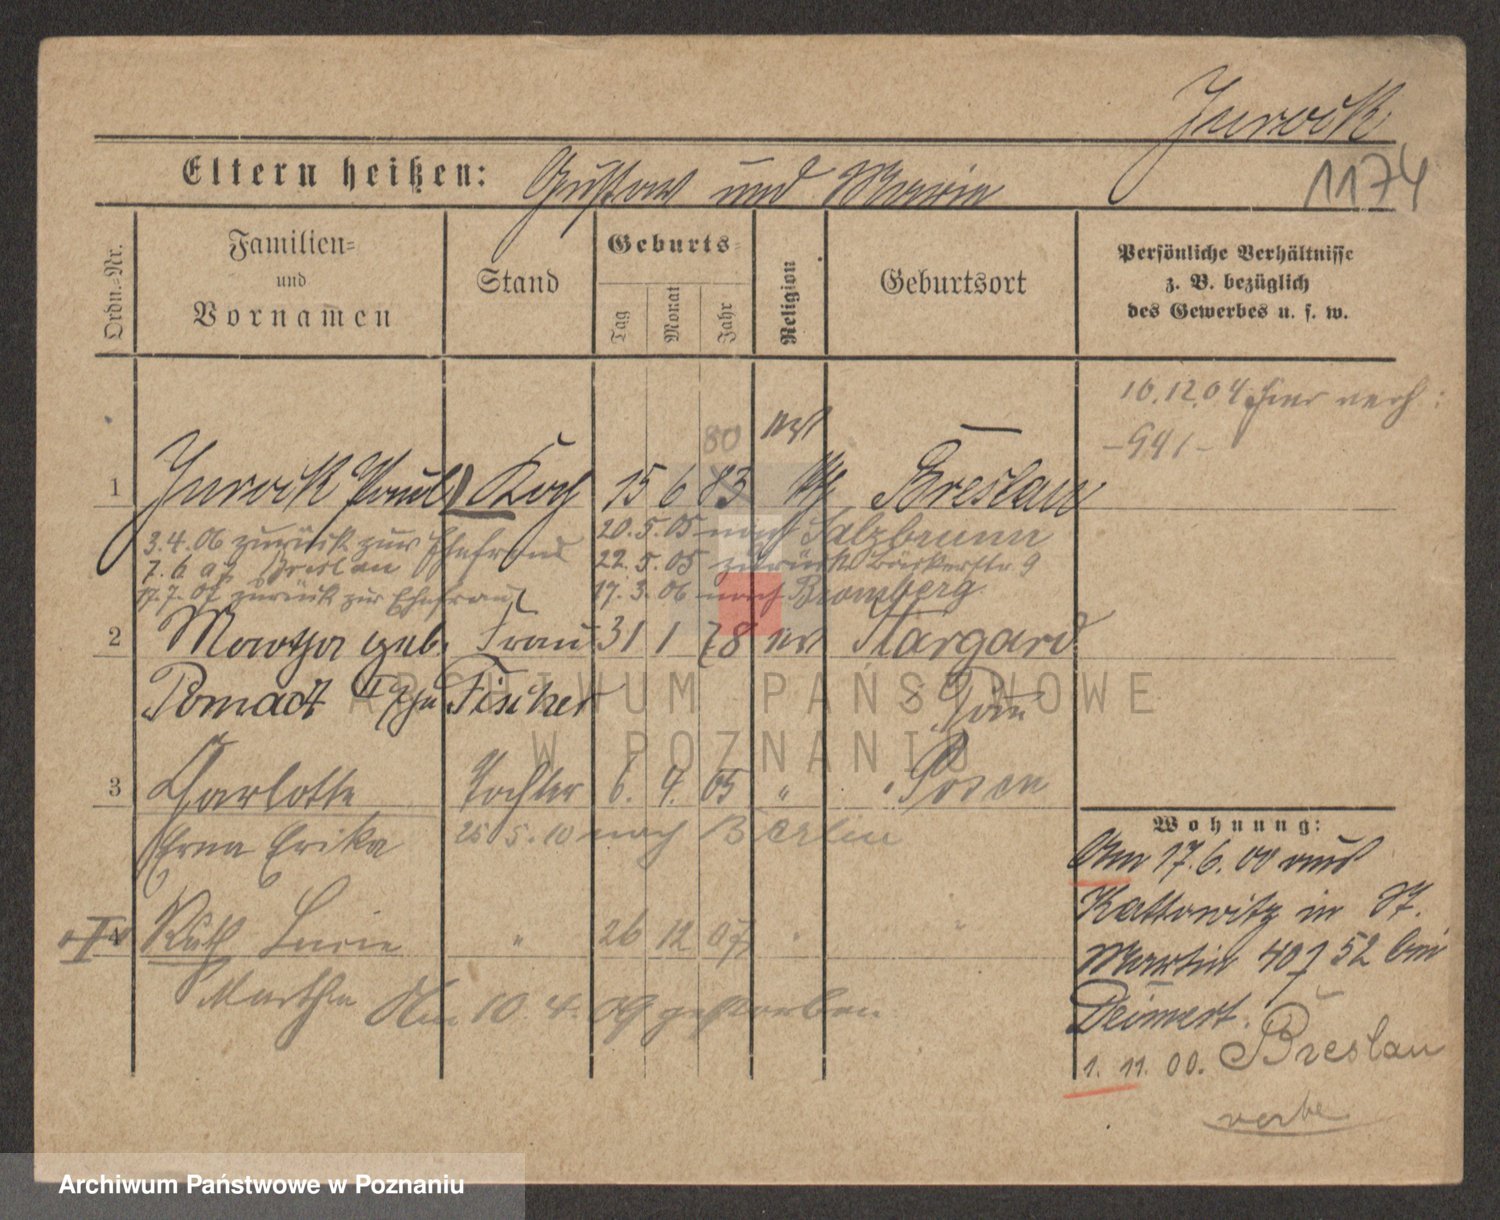 Jurock
1174
Eltern heißen: Gustav und Marie
Ordn.-Nr.
Familien=
und
Vornamen
Stand
Geburts=
Tag
Monat
Jahr
Religion
Geburtsort
Persönliche Verhältnisse
z. B. bezüglich
des Gewerbes u. s. w.
10.12.04 hier verh:
-941-
80
1 Jurock Paul Koch 15 6 83 Breslau
3.4.06 zurück zur Ehefrau
20.5.05 nach Salzbrunn
7.6.07 Breslau
22.5.05 zurück Bäckerstr. 9
17.7.07 zurück zur Ehefrau
17.3.06 nach Bromberg
2 Martha geb. Frau 31 1 78 Stargard
Pomadt Fischer
3 Charlotte Tochter 6. 4. 05 " Posen
Erna Erika 25 5.10 nach Berlin
Ruth Lucie " 26 12 07 " "
Martha Am 10.4.09 gestorben
Wohnung:
Am 17.6.00 aus
Kattowitz in St.
Martin 52 bei
1. 11. 00. Breslau
ARCHIWUM PAŃSTWOWE
W POZNANIU
Archiwum Państwowe w Poznaniu